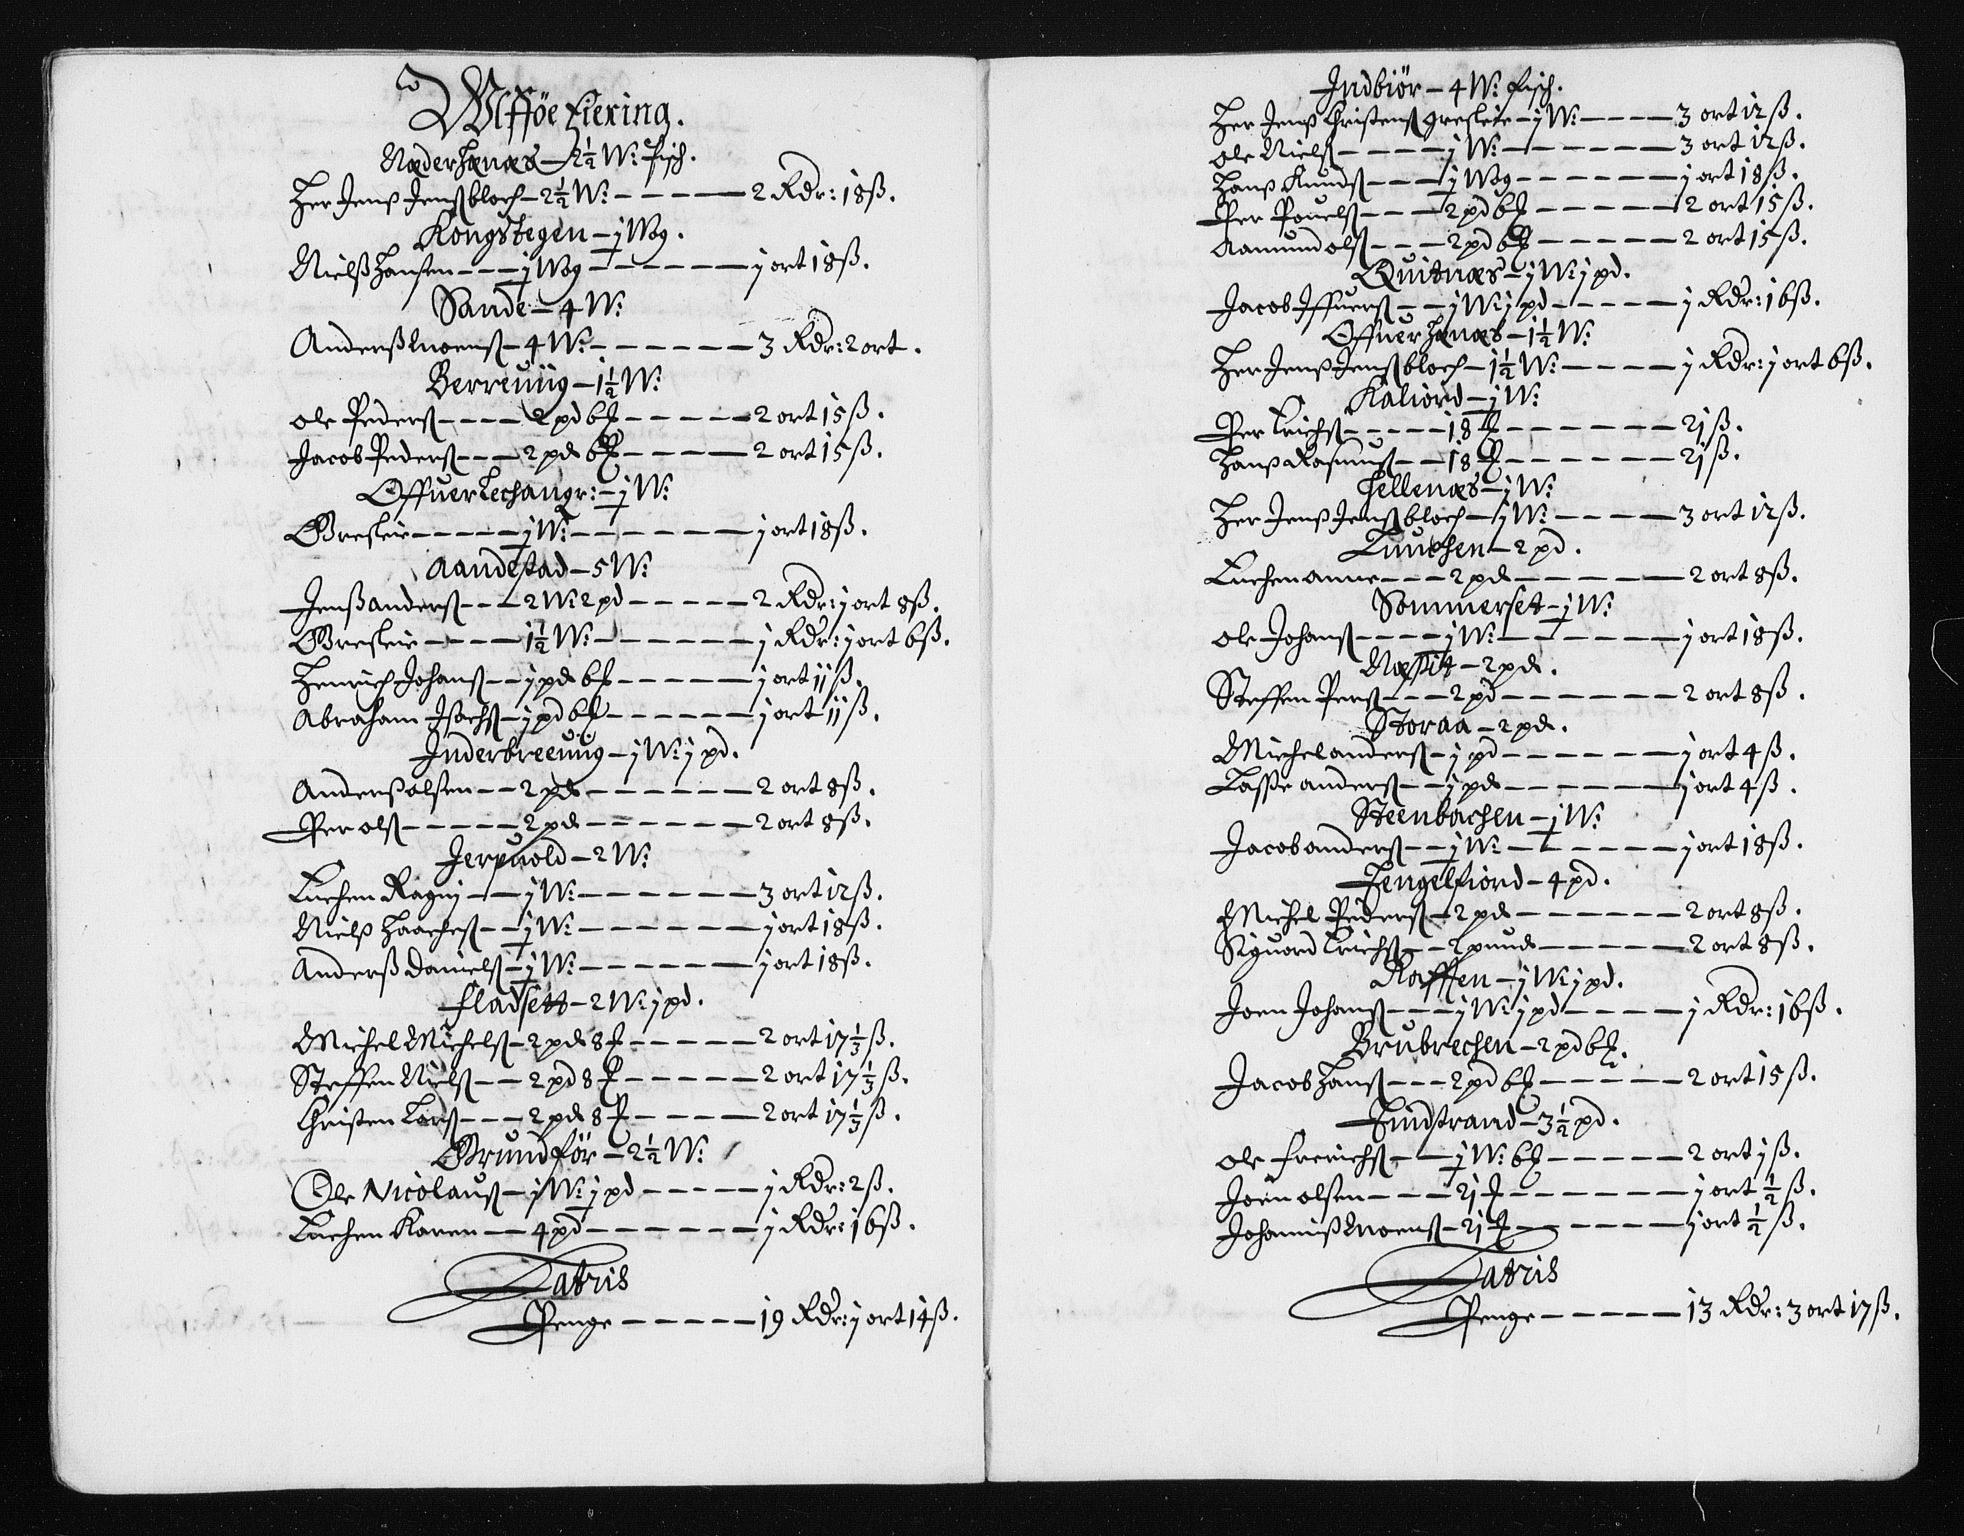 Wlfföe Fiering.
Næderhænæs – 2½ W: fisch.
Her Jenß Jenß bloch – 2½ W: – 2 Rdr: 18 ß.
Kongstegen – j Wog.
Nielß Hansen – j Wog – j ort 18 ß.
Sande – 4 W:
Anderß Moenß – 4 W: – 3 Rdr: 2 ort.
Berreuiig – 1½ W:
Ole Pederß – 2 pd 6 ℔ – 2 ort 15 ß.
Jacob Pederß – 2 pd 6 ℔ – 2 ort 15 ß.
Offuer Lechangr: – j W:
Greslie – j W: – j ort 18 ß.
Aandestad – 5 W:
Jenß anderß – 2 W: 2 pd – 2 Rdr: j ort 8 ß.
Greslie – 1½ W: – j Rdr: j ort 6 ß.
Henrich Johanß – j pd 6 ℔ – j ort 11 ß.
Abraham Isachß – j pd 6 ℔ – j ort 11 ß.
Inderbreeuiig – j W: j pd.
Anderß olsen – 2 pd – 2 ort 8 ß.
Per olß – 2 pd – 2 ort 8 ß.
Jerpuold – 2 W:
Enchen Ragni – j W: – 3 ort 12 ß.
Nielß Haachß – j W: – j ort 18 ß.
Anderß Danielß – j W: – j ort 18 ß.
Fladsett – 2 W: j pd.
Michel Michelß – 2 pd 8 ℔ – 2 ort 17⅓ ß.
Steffen Nielß – 2 pd 8 ℔ – 2 ort 17⅓ ß.
Christen Larß – 2 pd 8 ℔ – 2 ort 17⅓ ß.
Grundför – 2½ W:
Ole Nicolauß – j W: j pd – j Rdr: 2 ß.
Enchen Karen – 4 pd – j Rdr: 16 ß.
Latris
Penge – 19 Rdr: j ort 14 ß.
Indbiör – 4 W: fisch.
Her Jenß Christenß greslie – j W: – 3 ort 12 ß.
Ole Nielß – j W: – 3 ort 12 ß.
Hanß Knudß – j Wog – j ort 18 ß.
Per Pouelß – 2 pd 6 ℔ – 2 ort 15 ß.
Aamund olß – 2 pd 6 ℔ – 2 ort 15 ß.
Quitnæs – j W: j pd.
Jacob Iffuerß – j W: j pd – j Rdr: 16 ß.
Offuer hænæs – 1½ W:
Her Jenß Jenß bloch – 1½ W: – j Rdr: j ort 6 ß.
Kaliord – j W:
Per Erichß – 18 ℔ – 21 ß.
Hanß Rasmuß – 18 ℔ – 21 ß.
Hellenæs – j W:
Her Jenß Jenß bloch – j W: – 3 ort 12 ß.
Tuuchen – 2 pd.
Enchen anne – 2 pd – 2 ort 8 ß.
Sommerset – j W:
Ole Johanß – j W: – j ort 18 ß.
Næssit – 2 pd.
Steffen Perß – 2 pd – 2 ort 8 ß.
Storaa – 2 pd.
Michel anderß – j pd – j ort 4 ß.
Lasse anderß – j pd – j ort 4 ß.
Steenbachen – j W:
Jacob anderß – j W: – j ort 18 ß.
Tengelfiord – 4 pd.
Michel Pederß – 2 pd – 2 ort 8 ß.
Siguord Erichß – 2 pund – 2 ort 8 ß.
Roffen – j W: j pd.
Joen Johanß – j W: j pd – j Rdr: 16 ß.
Brubrechen – 2 pd 6 ℔.
Jacob Hanß – 2 pd 6 ℔ – 2 ort 15 ß.
Lindstrand – 3½ pd.
Ole Frerichß – j W: 6 ℔ – 2 ort j ß.
Joen olsen – 21 ℔ – j ort ½ ß.
Johanniß Moenß – 21 ℔ – j ort ½ ß.
Latris
Penge – 13 Rdr: 3 ort 17 ß.